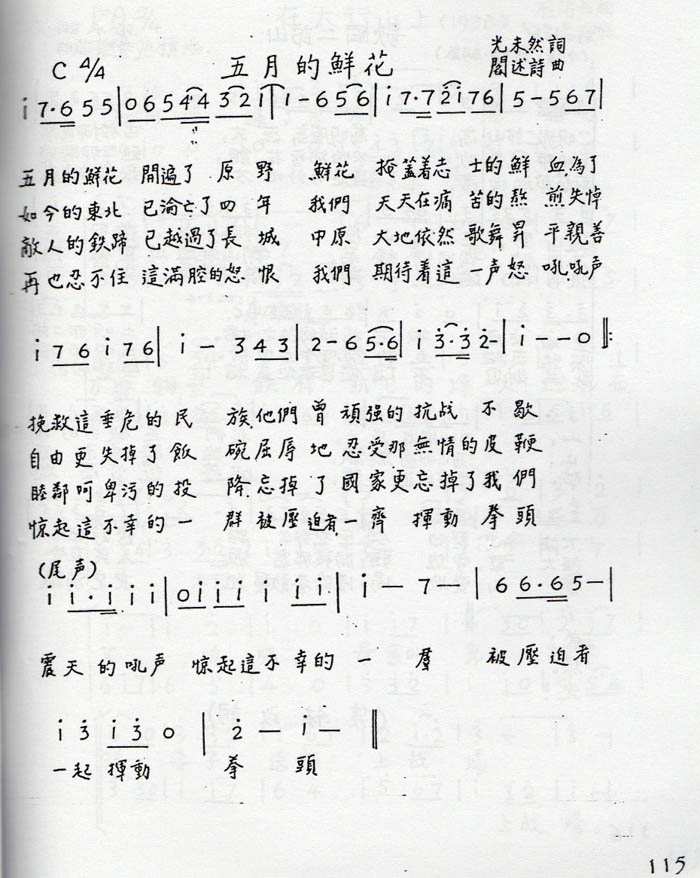 五月的鮮花
光未然詞
C 4/4
閻述詩曲
i 7·6 5 5 | 0 6 5 4·4 3 2 i | i - 6 5 6 | i 7·7 2 i 7 6 | 5 - 5 6 7 |
五月的鮮花 開遍了 原 野 鮮花 掩蓋着志 士的鮮 血為了
如今的東北 已淪亡了四 年 我們 天天在痛 苦的熬 煎失悼
敵人的鉄蹄 已越過了長 城 中原 大地依然 歌舞昇 平親善
再也忍不住 這滿腔的怨 恨 我們 期待着這 一声怒 吼吼声
i 7 6 i 7 6 | i - 3 4 3 | 2 - 6 5·6 | i 3·3 2 - | i - - 0 :||
挽救這垂危的民 族他們 曾 頑强的抗战 不 歇
自由更失掉了飯 碗屈辱 地 忍受那無情的皮 鞭
睦鄰呵卑污的投 降忘掉 了 國家更忘掉了我 們
惊起這不幸的一 群被壓迫者一齊 揮動 拳 頭
(尾声)
i i·i i i | 0 i i i i i i | i - 7 - | 6 6·6 5 - |
震天 的吼声 惊起這不幸的 一 羣 被壓迫者
i 3 i 3 0 | 2 - i - ||
一起 揮動 拳 頭
115